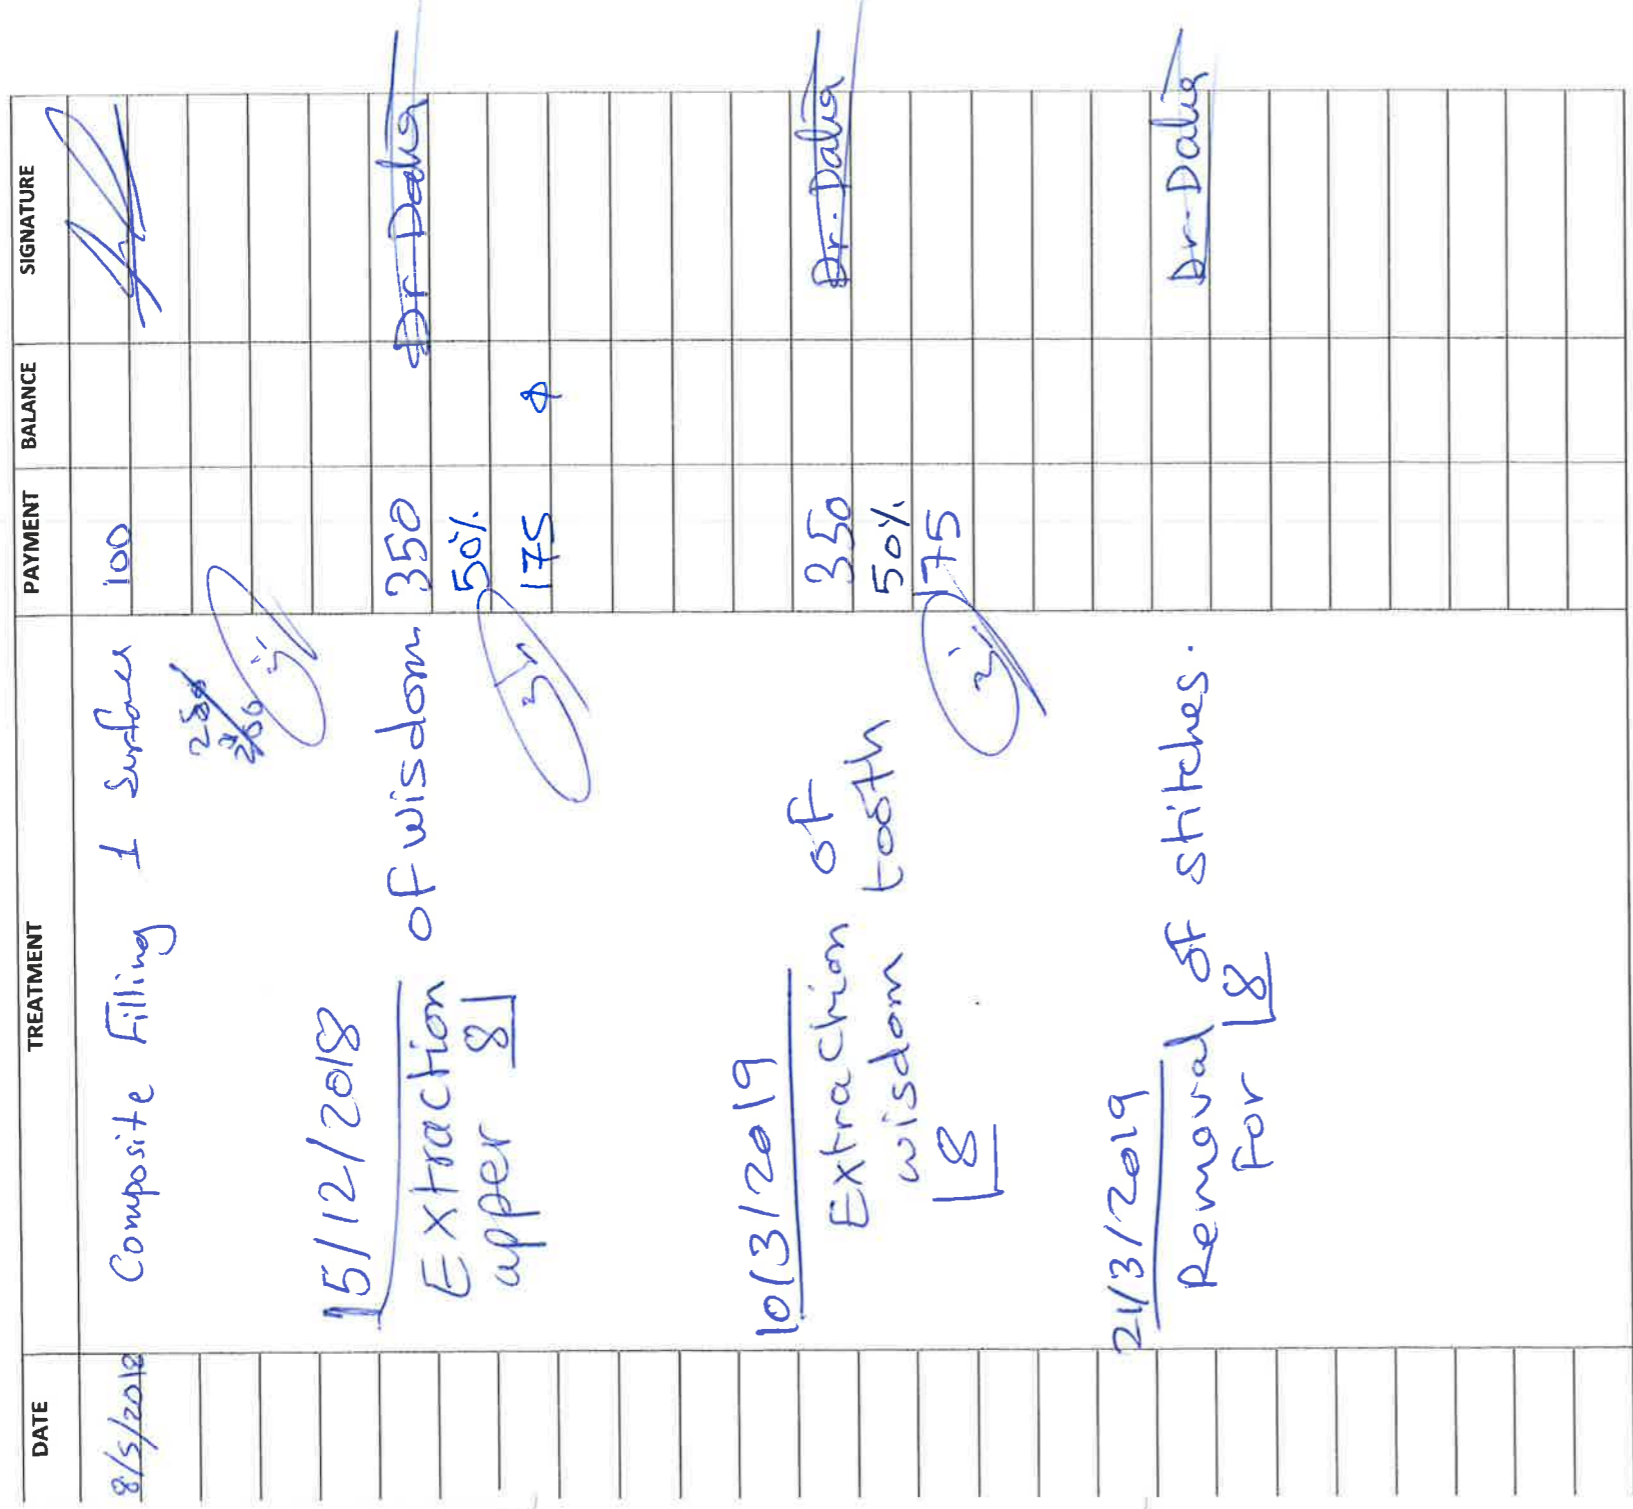 DATE TREATMENT PAYMENT BALANCE SIGNATURE
8/5/2018 Composite Filling 1 Surface 100
15/12/2018
Extraction of wisdom 350 Dr. Dalia
upper 8 50%
175
10/3/2019
Extraction of 350 Dr. Dalia
wisdom tooth 50%
8 175
21/3/2019
Removal of stitches. Dr. Dalia
For 8